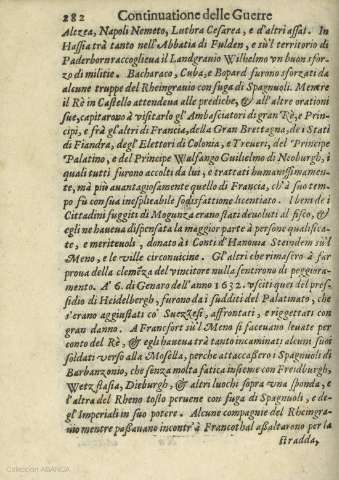 282 Continuatione delle Guerre
Altzea, Napoli Nemeto, Luthra Cesarea, e d'altri assai. In
Hassia trà tanto nell'Abbatia di Fulden, e sù'l territorio di
Paderborn raccoglieua il Landgrauio Wilhelmo vn buon sfor-
zo di militie. Bacharaco, Cuba, e Bopard furono sforzati da
alcune truppe del Rheingrauio con fuga di Spagnuoli. Mentre
il Rè in Castello attendeua alle prediche, & all'altre orationi
sue, capitarono à visitarlo gl'Ambasciatori di gran Rè, e Prin-
cipi, e frà gl'altri di Francia, della Gran Bretagna, de i Stati
di Fiandra, degl'Elettori di Colonia, e Treueri, del Principe
Palatino, e del Principe Walfango Guilielmo di Neoburgh, i
quali tutti furono accolti da lui, e trattati humanissimamen-
te, mà più auantagiosamente quello di Francia, ch'à suo tem-
po fù con sua inesplicabile sodisfattione licentiato. I beni de i
Cittadini fuggiti di Mogunza erano stati deuoluti al fisco, &
egli ne haueua dispensata la maggior parte à persone qualifica-
te, e meriteuoli, donato à i Conti d'Hanouia Steindem sù'l
Meno, e le ville circonuicine. Gl'altri che rimasero à far
proua della clemẽza del vincitore nulla sentirono di peggiora-
mento. A' 6. di Genaro dell'anno 1632. vsciti quei del pres-
sidio di Heidelbergh, furono da i sudditi del Palatinato, che
s'erano aggiustati co' Suezzesi, affrontati, e riggettati con
gran danno. A Francfort sù'l Meno si faceuano leuate per
conto del Rè, & egli haueua trà tanto incaminati alcuni suoi
soldati verso alla Mosella, perche attaccassero i Spagnuoli di
Barbanzonio, che senza molta fatica insieme con Freidburgh,
Wetzflasia, Dieburgh, & altri luochi sopra vna sponda, e
l'altra del Rheno tosto peruene con fuga di Spagnuoli, e de-
gl'Imperiali in suo potere. Alcune compagnie del Rheingra-
uio mentre passauano incontr'à Francothal assaltarono per la
stradda,
Colección ABANCA